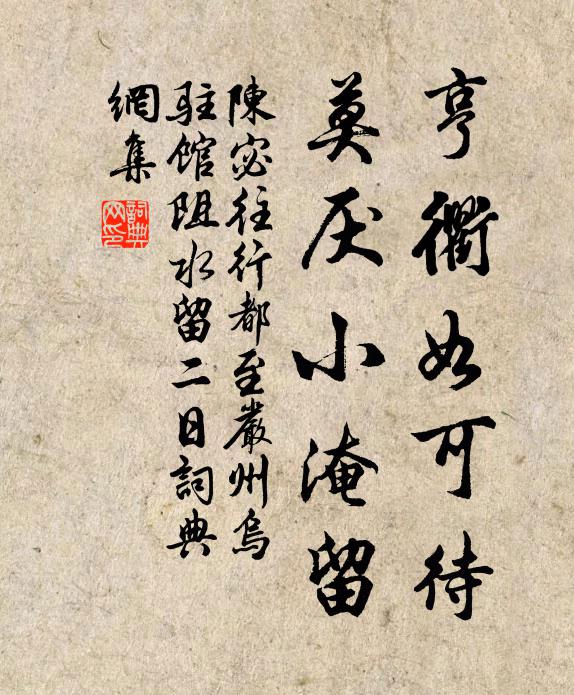 亨衢如可待
莫厌小淹留
陳宓往行都至嚴州烏
駐館阻水留二日詞典
網集
詞典
网印